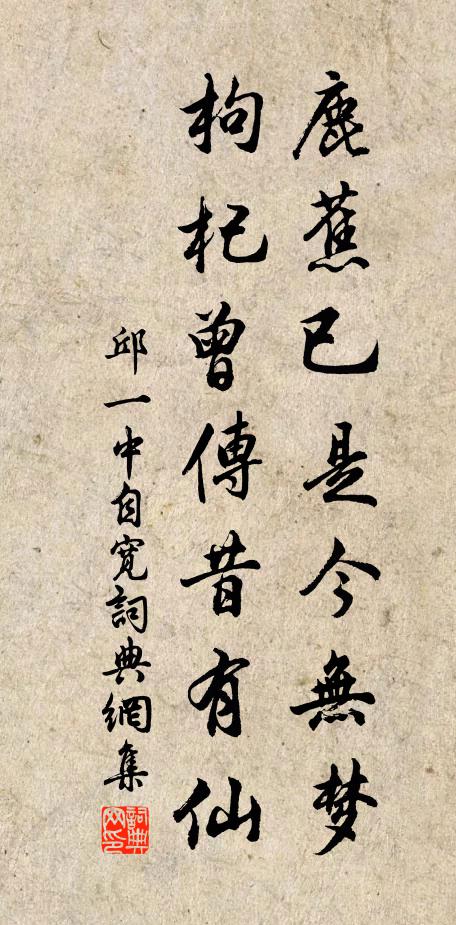 鹿蕉已是今無梦
枸杞曾傳昔有仙
邱一中自寬詞典網集
詞典网印